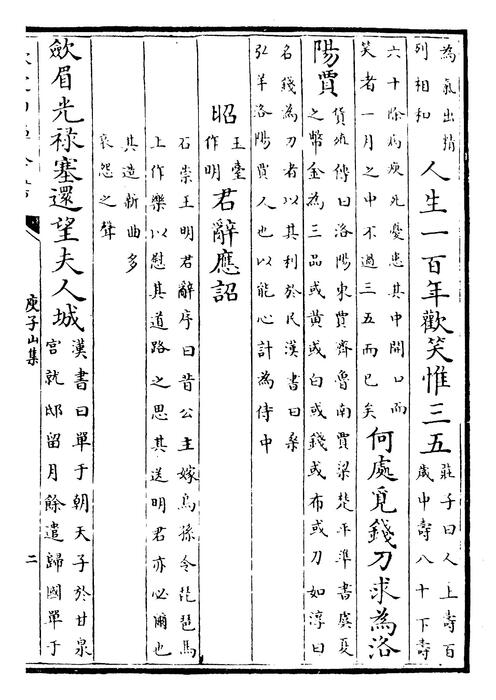 為氣出精
列相和
人生一百年歡笑惟三五
莊子曰人上壽百
歲中壽八十下壽
六十除病瘐死憂患其中開口而
笑者一月之中不過三五而已矣
何處覓錢刀求為洛
陽賈
貨殖傳曰洛陽東賈齊魯南賈梁楚平準書虞夏
之幣金為三品或黃或白或錢或布或刀如淳曰
名錢為刀者以其利於民漢書曰桑
弘羊洛陽賈人也以能心計為侍中
昭
玉臺
作明
君辭應詔
石崇王明君辭序曰昔公主嫁烏孫令琵琶馬
上作樂以慰其道路之思其送明君亦必爾也
其造新曲多
哀怨之聲
斂眉光祿塞還望夫人城
漢書曰單于朝天子於甘泉
宮就邸留月餘遣歸國單于
庾子山集
二